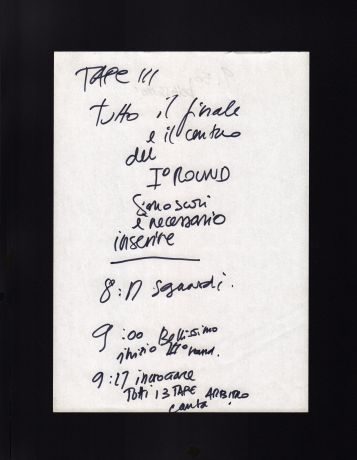 TAPE III
tutto il finale
e il centro
del
I° ROUND
Sono scuri
è necessario
inserire
8:17 Sguardi.
9:00 Bellissimo
inizio round.
9:27 incrociare
Tutti i 3 TAPE ARBITRO
canta